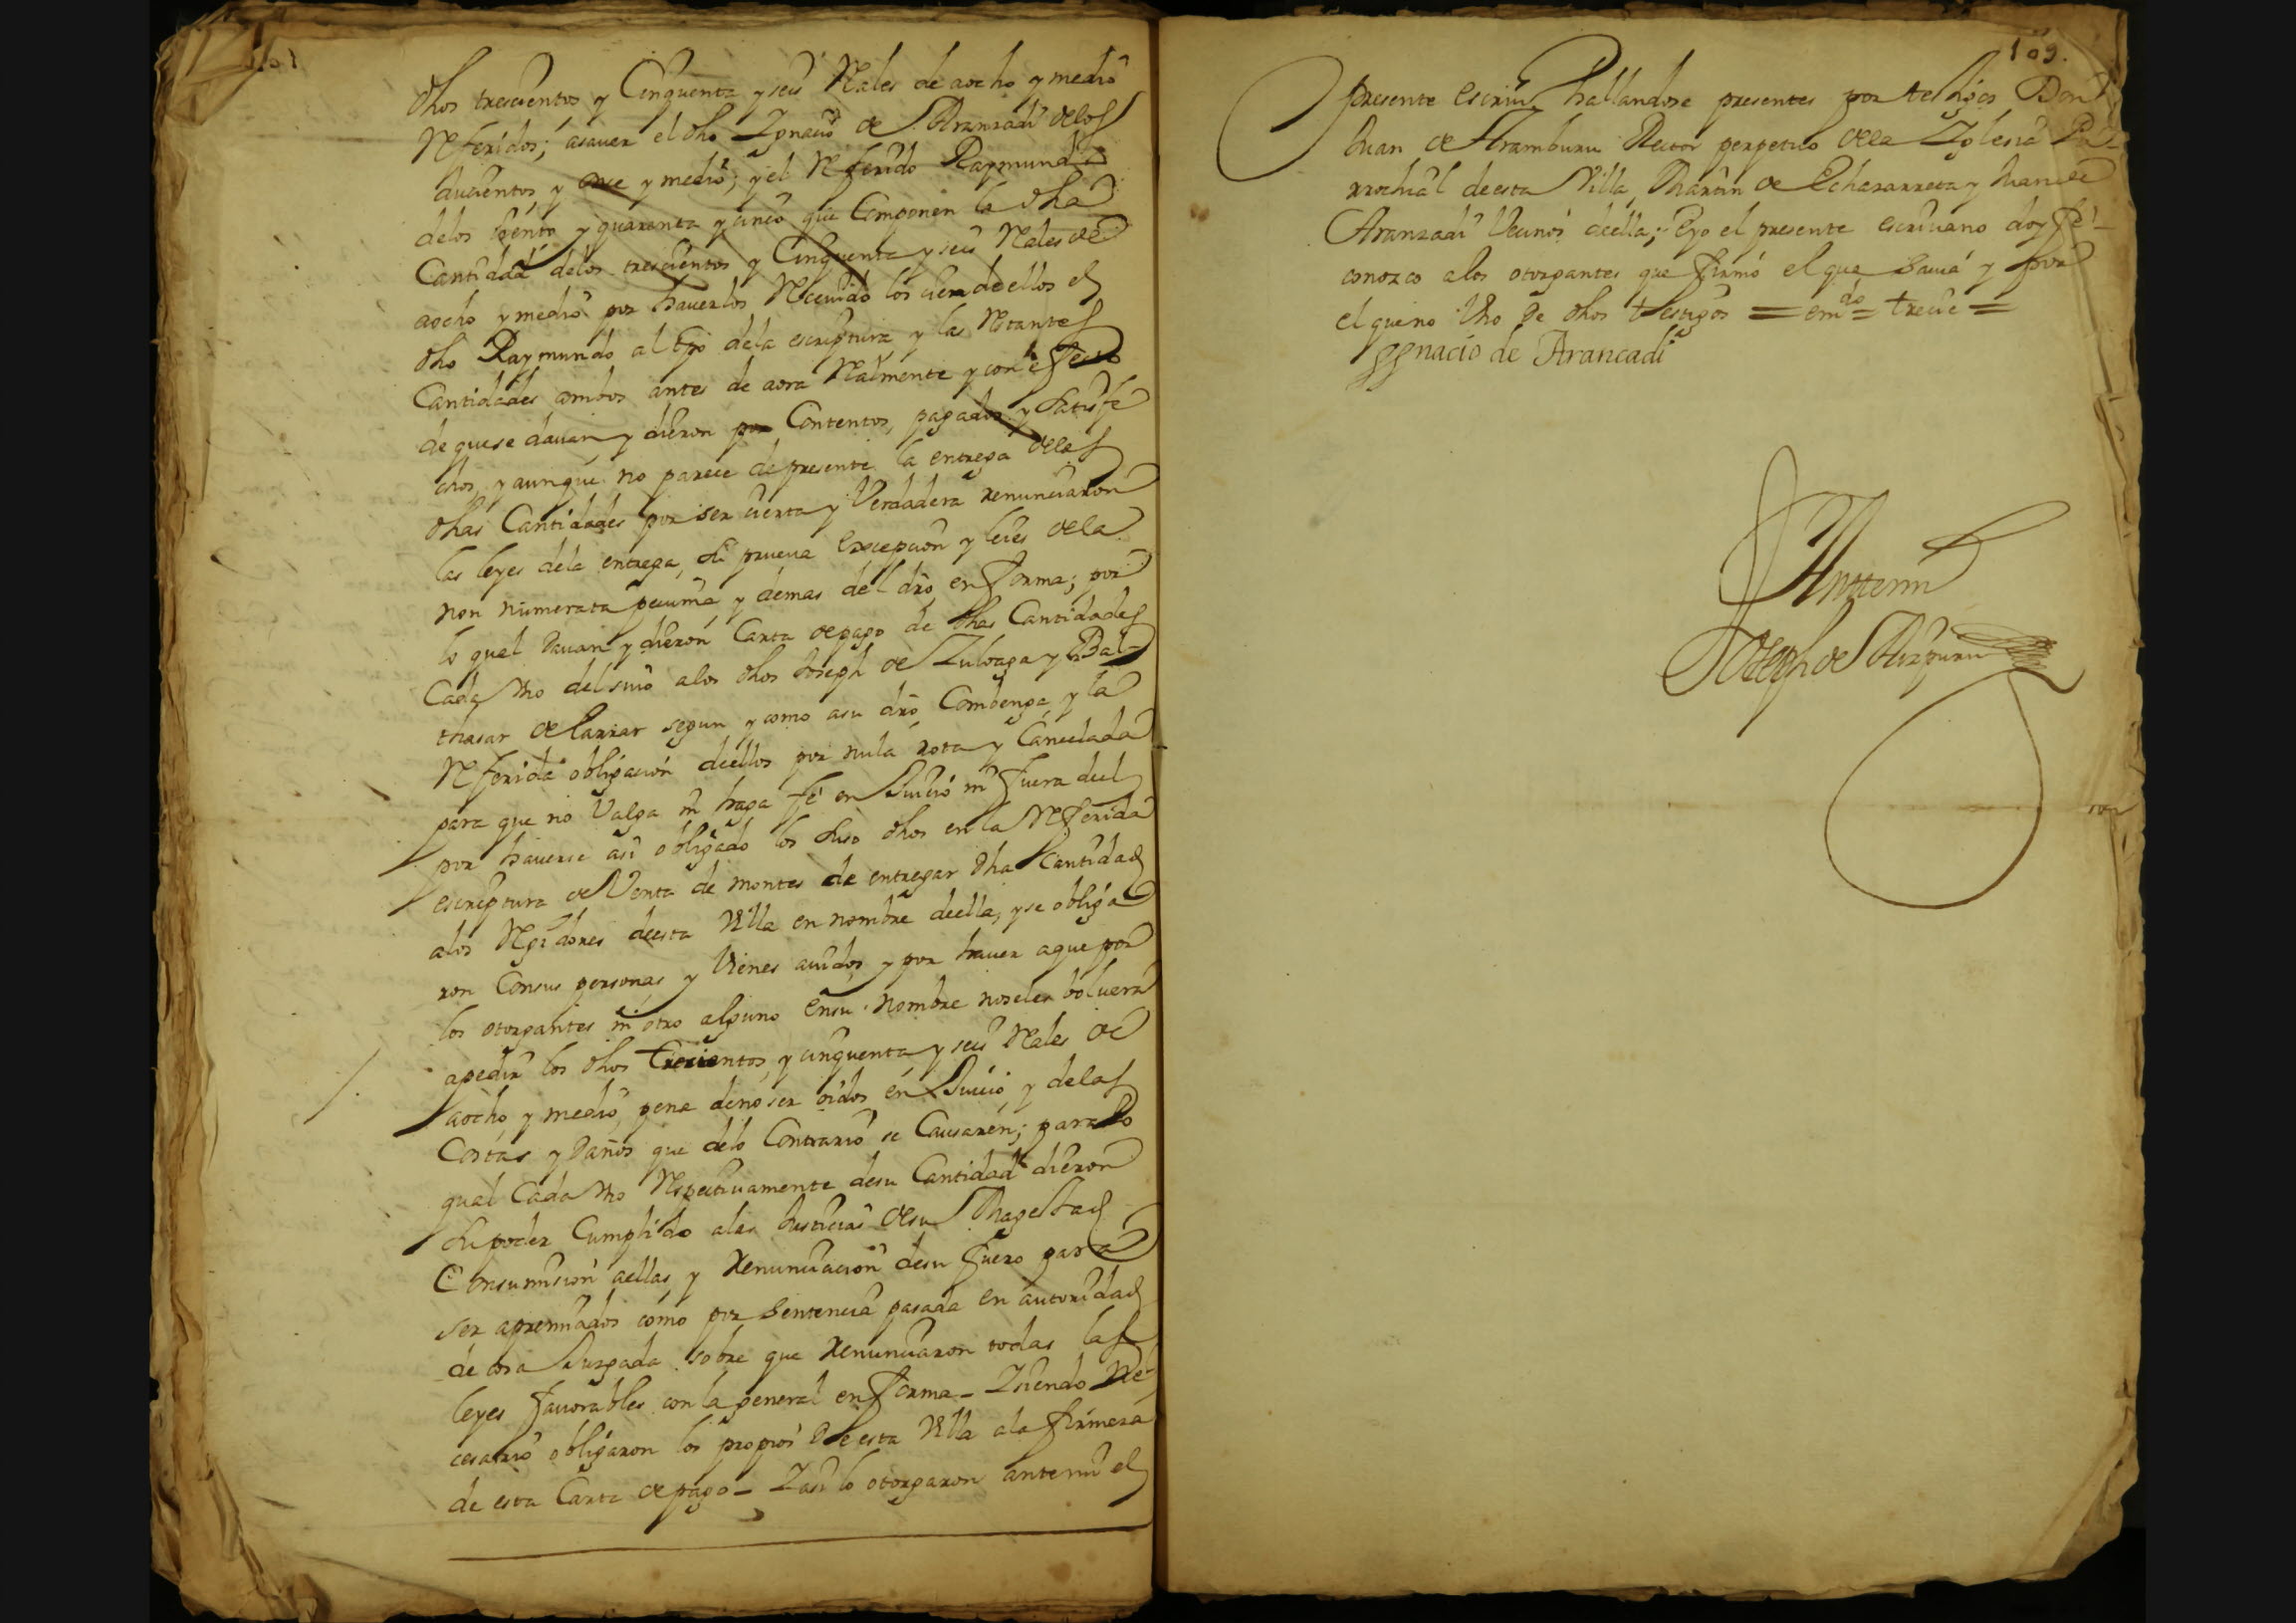 dhos trescientos y Cinquenta y seis Reales de aocho y medio
Referidos; asauer el dho Ignacio de Aranzadi delos
ducientos y once y medio; y el Referido Raymundo
delos Ciento y quarenta y cinco que Componen la dha
Cantidad delos trescientos y Cinquenta y seis Reales de
aocho y medio por hauerlos Recevido los cien deellos el
dho Raymundo al tpo dela escriptura y las Restantes
Cantidades ambos antes de aora Realmente y con efecto
de que se dauan y dieron por Contentos, pagados y Satisfe
chos, y aunque no parece de presente la entrega delas
dhas Cantidades por ser cierta y Verdadera renunciaron
las leyes dela entrega, su prueua Excepcion y leies dela
non numerata pecunia y demas del dro en forma; por
lo qual Dauan y dieron Carta de pago de dhas Cantidades
Cada Vno del suio alos dhos Joseph de Zuloaga y Bal-
thasar de Larrar segun y como asu dro Combenga y la
Referida obligacion deellos por nula rota y Cancelada
para que no Valga ni haga fé en Juicio ni fuera deel
por hauerse asi obligado los suso dhos en la Referida
escriptura de Venta de montes de entregar dha Cantidad
alos Regidores deesta Villa en nombre deella, y se obliga
ron Consus personas y Vienes auidos y por hauer aque por
los otorgantes ni otro alguno Ensu nombre noseles boluera
apedir los dhos trecientos, y cinquenta y seis Reales de
aocho y medio, pena deno ser oidos en Juicio, y delas
Costas y Daños que delo Contrario se Causaren; para lo
qual Cada Vno Respectiuamente desu Cantidad dieron
su poder Cumplido alas Justicias desu Magestad
Consumision aellas y Renunciacion desu fuero para
ser apremiados como por Sentencia pasada en autoridad
de cosa Juzgada sobre que Renunciaron todas las
leyes fauorables con la general en forma - Isiendo Ne-
cesario obligaron los propios Deesta Villa ala firmeza
de esta Carta de pago - Iasi lo otorgaron antemi el
109.
presente escriuo hallandose presentes por testigos Don
Juan de Aramburu Rector perpetuo dela Iglesia Pa-
rrochial deesta Villa, Martin de Echazarreta y Juan de
Aranzadi Vecinos deella; Eyo el presente escriuano doy fé
conozco alos otorgantes que firmó el que sauia y por
el que no Vno De dhos testigos = emdo = trecie =
Ygnacio de Arancadi
Antemi
Joseph de Aizpuru